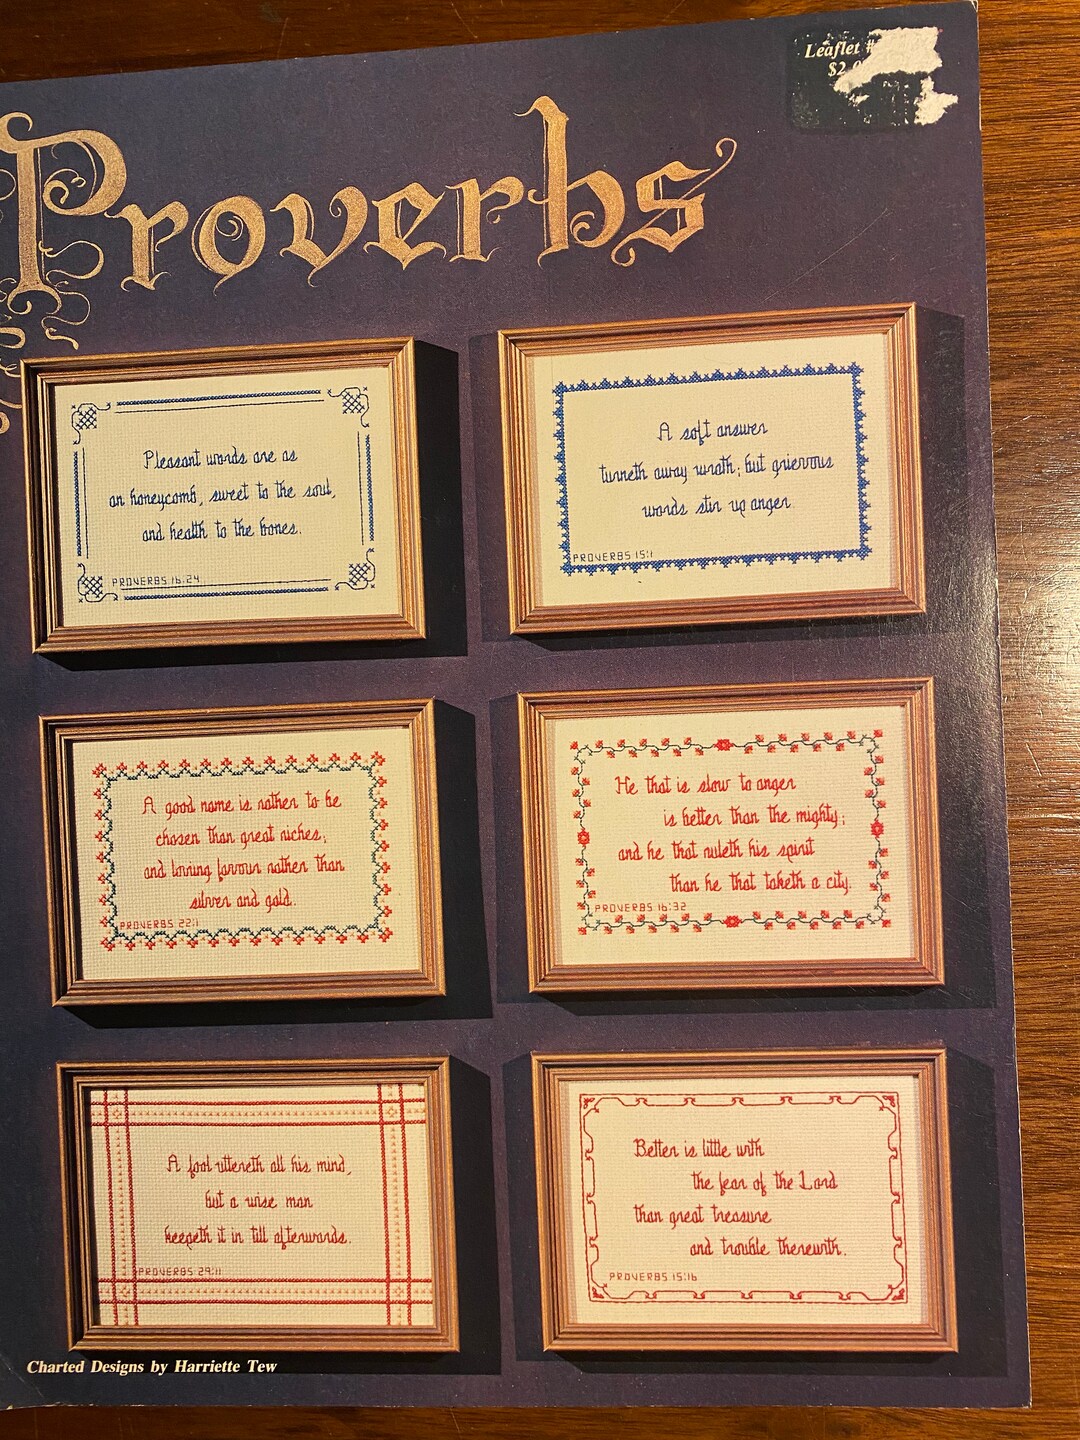 Leaflet #
Proverbs
Pleasant words are as
an honeycomb, sweet to the soul,
and health to the bones.
PROVERBS 16:24
A soft answer
turneth away wrath; but grievous
words stir up anger.
PROVERBS 15:1
A good name is rather to be
chosen than great riches,
and loving favour rather than
silver and gold.
PROVERBS 22:1
He that is slow to anger
is better than the mighty;
and he that ruleth his spirit
than he that taketh a city.
PROVERBS 16:32
A fool uttereth all his mind,
but a wise man
keepeth it in till afterwards.
PROVERBS 29:11
Better is little with
the fear of the Lord
than great treasure
and trouble therewith.
PROVERBS 15:16
Charted Designs by Harriette Tew